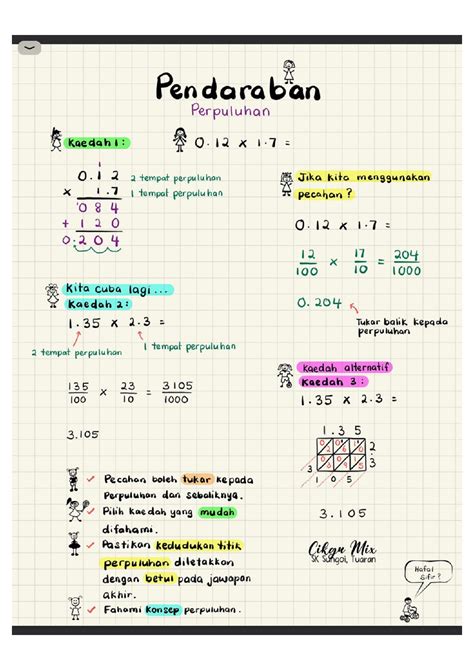 Pendaraban
Perpuluhan
Kaedah 1:
0.12 x 1.7 =
1
0.12 2 tempat perpuluhan
x 1.7 1 tempat perpuluhan
084
+ 120
0.204
Jika kita menggunakan
pecahan?
0.12 x 1.7 =
12/100 x 17/10 = 204/1000
0.204
Tukar balik kepada
perpuluhan
Kita cuba lagi...
Kaedah 2:
1.35 x 2.3 =
2 tempat perpuluhan
1 tempat perpuluhan
135/100 x 23/10 = 3105/1000
3.105
Kaedah alternatif
Kaedah 3:
1.35 x 2.3 =
1. 3 5
2
3
3
1 0 5
3.105
✓ Pecahan boleh tukar kepada
Perpuluhan dan sebaliknya.
✓ Pilih kaedah yang mudah
difahami.
✓ Pastikan kedudukan titik
perpuluhan diletakkan
dengan betul pada jawapan
akhir.
✓ Fahami konsep perpuluhan.
Cikgu Mix
SK Sungoi, Tuaran
Hafal
Sifir?